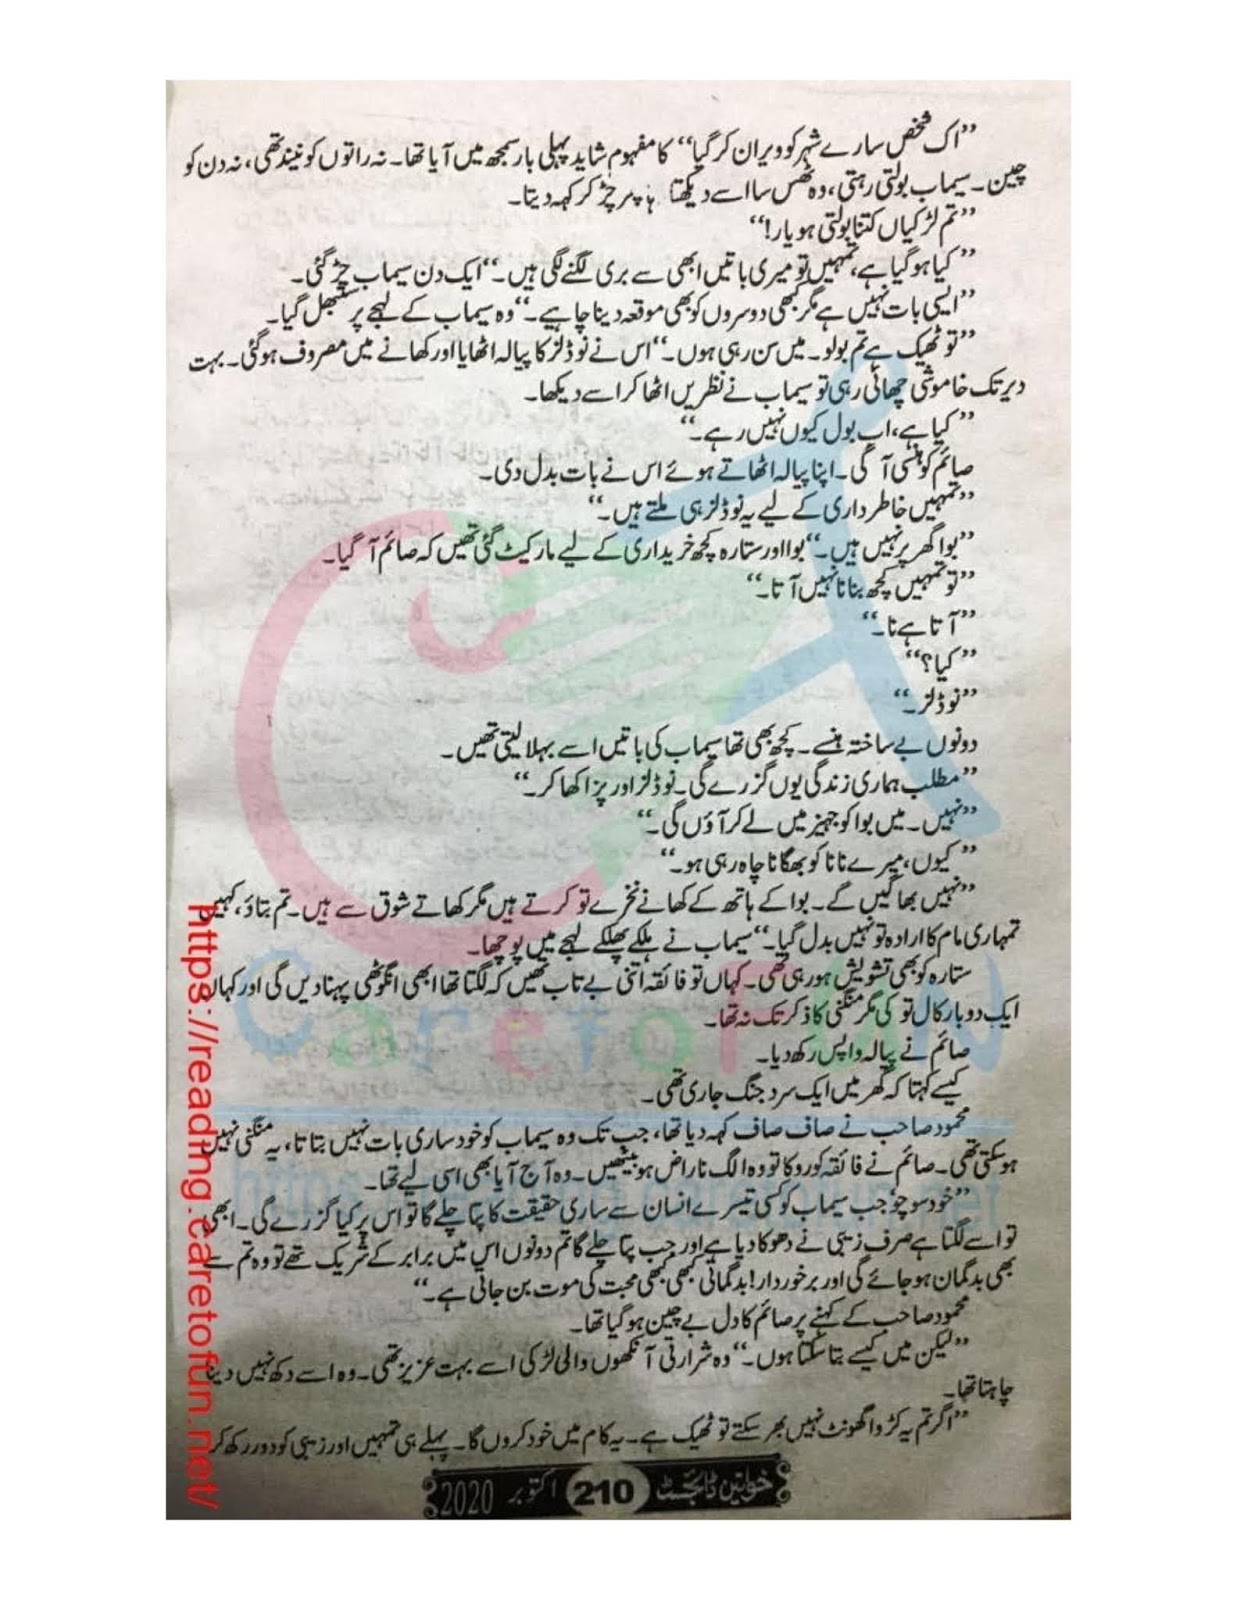 ”اک شخص سارے شہر کو ویران کر گیا“ کا مفہوم شاید پہلی بار سمجھ میں آیا تھا۔ نہ راتوں کو نیند تھی، نہ دن کو
چین۔ سیماب بولتی رہتی، وہ ٹھس سا اسے دیکھتا پر چڑ کر کہہ دیتا۔
”تم لڑکیاں کتنا بولتی ہو یار!“
”کیا ہو گیا ہے، تمہیں تو میری باتیں ابھی سے بری لگنے لگی ہیں۔“ ایک دن سیماب چڑ گئی۔
”ایسی بات نہیں ہے مگر کبھی دوسروں کو بھی موقعہ دینا چاہیے۔“ وہ سیماب کے لہجے پر سنبھل گیا۔
”تو ٹھیک ہے تم بولو۔ میں سن رہی ہوں۔“ اس نے نوڈلز کا پیالہ اٹھایا اور کھانے میں مصروف ہو گئی۔ بہت
دیر تک خاموشی چھائی رہی تو سیماب نے نظریں اٹھا کر اسے دیکھا۔
”کیا ہے، اب بول کیوں نہیں رہے۔“
صائم کو ہنسی آ گی۔ اپنا پیالہ اٹھاتے ہوئے اس نے بات بدل دی۔
”تمہیں خاطر داری کے لیے یہ نوڈلز ہی ملتے ہیں۔“
”بوا گھر پر نہیں ہیں۔“ بوا اور ستارہ کچھ خریداری کے لیے مارکیٹ گئی تھیں کہ صائم آ گیا۔
”تو تمہیں کچھ بنانا نہیں آتا۔“
”آتا ہے نا۔“
”کیا؟“
”نوڈلز۔“
دونوں بے ساختہ ہنسے۔ کچھ بھی تھا سیماب کی باتیں اسے بہلا لیتی تھیں۔
”مطلب ہماری زندگی یوں گزرے گی۔ نوڈلز اور پزا کھا کر۔“
”نہیں۔ میں بوا کو جہیز میں لے کر آؤں گی۔“
”کیوں، میرے نانا کو بھگانا چاہ رہی ہو۔“
”نہیں بھاگیں گے۔ بوا کے ہاتھ کے کھانے نخرے تو کرتے ہیں مگر کھاتے شوق سے ہیں۔ تم بتاؤ، کہیں
تمہاری مام کا ارادہ تو نہیں بدل گیا۔“ سیماب نے ہلکے پھلکے لہجے میں پوچھا۔
ستارہ کو بھی تشویش ہو رہی تھی۔ کہاں تو فائقہ اتنی بے تاب تھیں کہ لگتا تھا ابھی انگوٹھی پہنا دیں گی اور کہاں
ایک دو بار کال تو کی مگر منگنی کا ذکر تک نہ تھا۔
صائم نے پیالہ واپس رکھ دیا۔
کیسے کہتا کہ گھر میں ایک سرد جنگ جاری تھی۔
محمود صاحب نے صاف صاف کہہ دیا تھا، جب تک وہ سیماب کو خود ساری بات نہیں بتاتا، یہ منگنی نہیں
ہو سکتی تھی۔ صائم نے فائقہ کو روکا تو وہ الگ ناراض ہو بیٹھیں۔ وہ آج آیا بھی اسی لیے تھا۔
”خود سوچو جب سیماب کو کسی تیسرے انسان سے ساری حقیقت کا پتا چلے گا تو اس پر کیا گزرے گی۔ ابھی
تو اسے لگتا ہے صرف زیبی نے دھوکا دیا ہے اور جب پتا چلے گا تم دونوں اس میں برابر کے شریک تھے تو وہ تم سے
بھی بدگمان ہو جائے گی اور برخوردار! بدگمانی کبھی کبھی محبت کی موت بن جاتی ہے۔“
محمود صاحب کے کہنے پر صائم کا دل بے چین ہو گیا تھا۔
”لیکن میں کیسے بتا سکتا ہوں۔“ وہ شرارتی آنکھوں والی لڑکی اسے بہت عزیز تھی۔ وہ اسے دکھ نہیں دینا
چاہتا تھا۔
”اگر تم یہ کڑوا گھونٹ نہیں بھر سکتے تو ٹھیک ہے۔ یہ کام میں خود کروں گا۔ پہلے ہی تمہیں اور زیبی کو دور رکھ کر
خواتین ڈائجسٹ 210 اکتوبر 2020
https://reading.caretofun.net/
CaretoFun
https://reading.caretofun.net